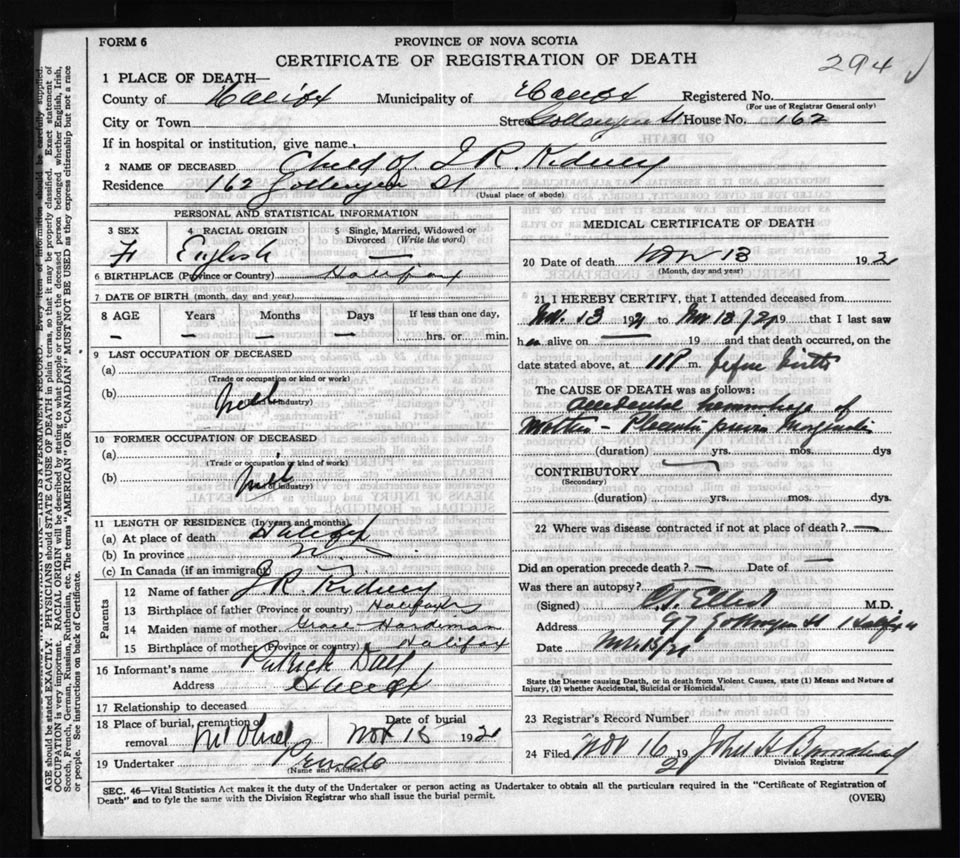 FORM 6
PROVINCE OF NOVA SCOTIA
CERTIFICATE OF REGISTRATION OF DEATH
294
1 PLACE OF DEATH—
County of Halifax Municipality of Halifax Registered No.
(For use of Registrar General only)
City or Town Street Gottingen St House No. 162
If in hospital or institution, give name
2 NAME OF DECEASED Child of J R Kidney
Residence 162 Gottingen St
(Usual place of abode)
PERSONAL AND STATISTICAL INFORMATION
3 SEX 4 RACIAL ORIGIN 5 Single, Married, Widowed or Divorced (Write the word)
F English —
6 BIRTHPLACE (Province or Country) Halifax
7 DATE OF BIRTH (month, day and year)
8 AGE Years Months Days If less than one day,
— — — — hrs. or min.
9 LAST OCCUPATION OF DECEASED
(a)
(Trade or occupation or kind or work)
(b)
(Kind of Industry)
10 FORMER OCCUPATION OF DECEASED
(a)
(Trade or occupation or kind or work)
(b)
(Kind of Industry)
11 LENGTH OF RESIDENCE (In years and months)
(a) At place of death Halifax
(b) In province
(c) In Canada (if an immigrant)
Parents
12 Name of father J. R. Kidney
13 Birthplace of father (Province or country) Halifax
14 Maiden name of mother Grace Hardiman
15 Birthplace of mother (Province or country) Halifax
16 Informant's name Patrick
Address Halifax
17 Relationship to deceased
18 Place of burial, cremation or removal Mt Olivet Date of burial Nov 15 1921
19 Undertaker
(Name and Address)
MEDICAL CERTIFICATE OF DEATH
20 Date of death Nov 13 192
(Month, day and year)
21 I HEREBY CERTIFY, that I attended deceased from
Nov. 13 1921 to Nov 13 1921 that I last saw
h alive on — 19 and that death occurred, on the
date stated above, at 11 P m. before birth
The CAUSE OF DEATH was as follows:
Accidental hemorrhage of
Mother – Placenta previa Marginalis
(duration) yrs. mos. dys
CONTRIBUTORY
(Secondary)
(duration) yrs. mos. dys.
22 Where was disease contracted if not at place of death? —
Did an operation precede death? — Date of —
Was there an autopsy?
(Signed) Elliot M.D.
Address 97 Gottingen St Halifax
Date Nov. 15/21
State the Disease causing Death, or in death from Violent Causes, state (1) Means and Nature of Injury, (2) whether Accidental, Suicidal or Homicidal.
23 Registrar's Record Number
24 Filed Nov 16 19 John H
Division Registrar
SEC. 46—Vital Statistics Act makes it the duty of the Undertaker or person acting as Undertaker to obtain all the particulars required in the "Certificate of Registration of
Death" and to fyle the same with the Division Registrar who shall issue the burial permit.
(OVER)
AGE should be stated EXACTLY. PHYSICIANS should STATE CAUSE OF DEATH in plain terms, so that it may be properly classified. Exact statement of
OCCUPATION is very important. RACIAL ORIGIN will be described by stating to what people or tongue the deceased person belonged, whether English, Irish,
Scotch, French, German, Russian, Ruthenian, etc. The terms "AMERICAN" OR "CANADIAN" MUST NOT BE USED as they express citizenship but not a race
or people. See instructions on back of Certificate.